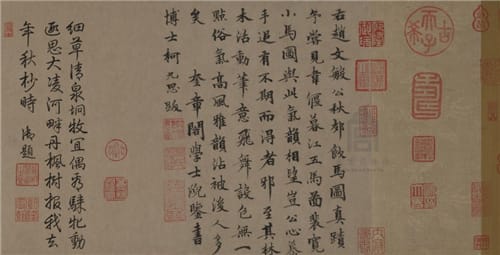 古希天子
右趙文敏公秋郊飲馬圖真蹟
予嘗見韋偃暮江五馬圖裴寬
小馬圖與此氣韻相望豈公心慕
手追有不期而得者邪至其林
木活動筆意飛舞設色無一
點俗氣高風雅韻沾被後人多
矣 奎章閣學士院鑒書
博士柯九思跋
細草清泉坰牧宜偶看騋牝動
遐思大凌河畔丹楓樹報我去
年秋杪時 御題